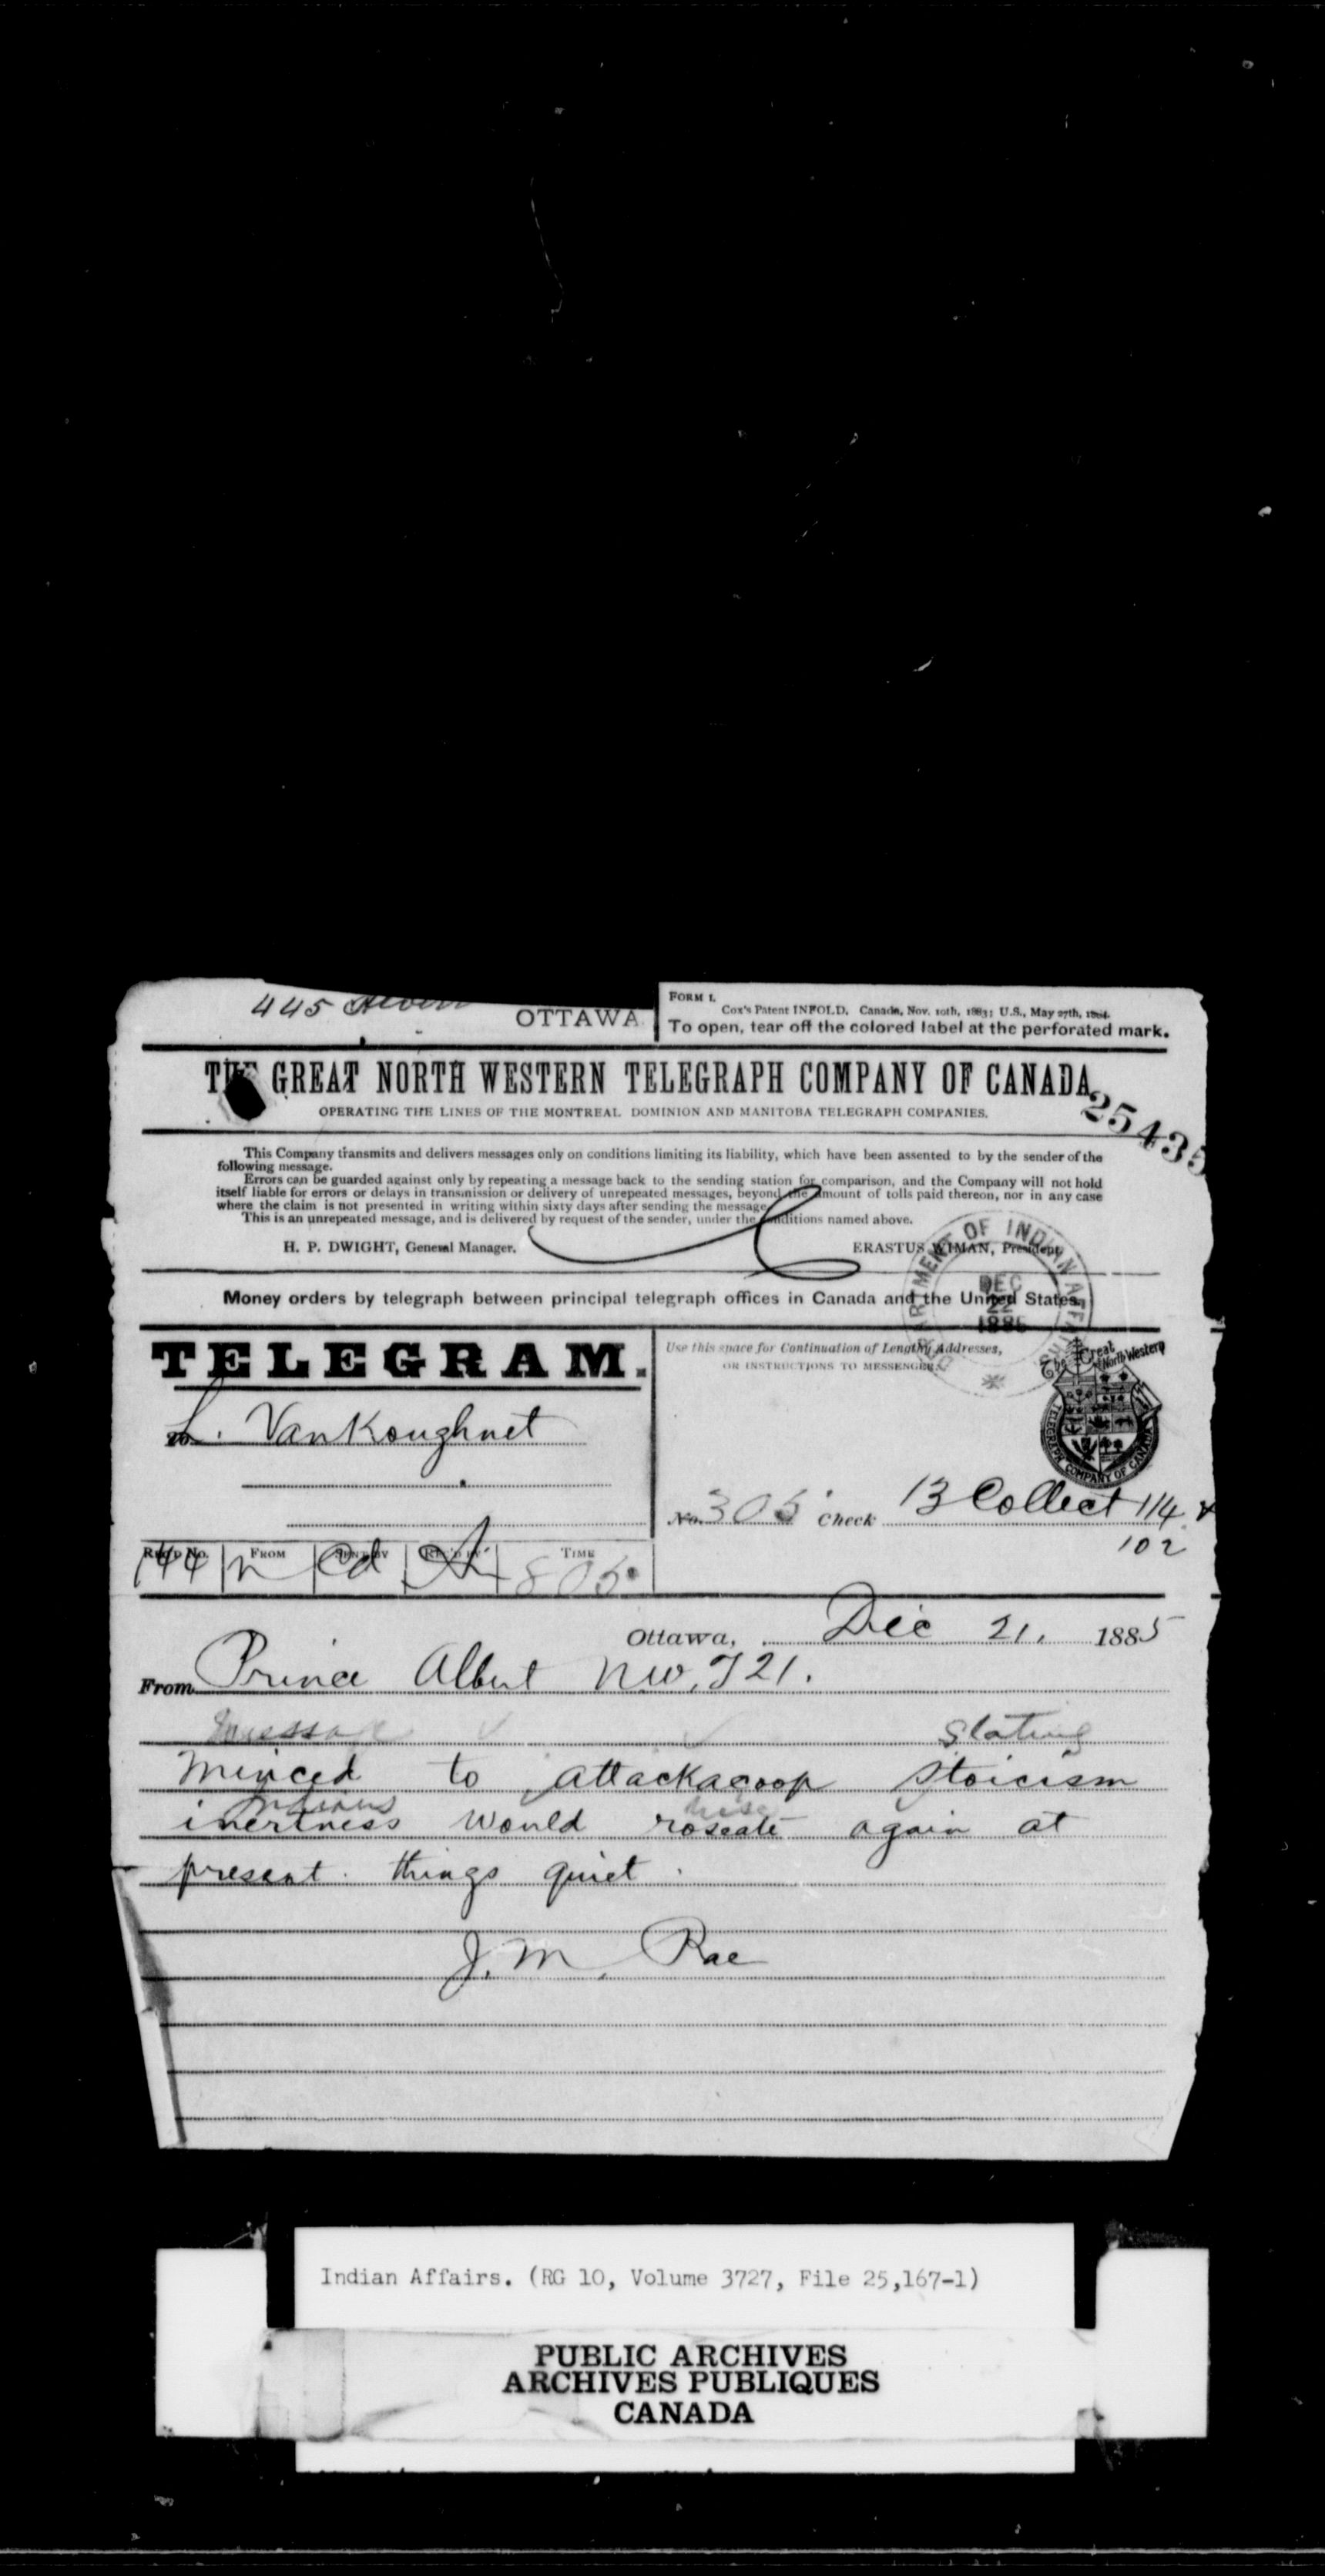 445
OTTAWA
FORM 1.
Cox's Patent INFOLD. Canada, Nov. 10th, 1883; U.S., May 27th, 1884.
To open, tear off the colored label at the perforated mark.
THE GREAT NORTH WESTERN TELEGRAPH COMPANY OF CANADA
OPERATING THE LINES OF THE MONTREAL DOMINION AND MANITOBA TELEGRAPH COMPANIES.
25435
This Company transmits and delivers messages only on conditions limiting its liability, which have been assented to by the sender of the
following message.
Errors can be guarded against only by repeating a message back to the sending station for comparison, and the Company will not hold
itself liable for errors or delays in transmission or delivery of unrepeated messages, beyond the amount of tolls paid thereon, nor in any case
where the claim is not presented in writing within sixty days after sending the message.
This is an unrepeated message, and is delivered by request of the sender, under the conditions named above.
H. P. DWIGHT, General Manager.
ERASTUS WIMAN, President.
DEPARTMENT OF INDIAN AFFAIRS
DEC
22
1885
Money orders by telegraph between principal telegraph offices in Canada and the United States.
TELEGRAM.
Use this space for Continuation of Lengthy Addresses,
OR INSTRUCTIONS TO MESSENGERS.
The Great North Western
TELEGRAPH COMPANY OF CANADA
To L. VanKoughnet
No. 305 Check 13 Collect 114 &
102
REC'D No. FROM SENT BY REC'D BY TIME
144 n Cd 805
Ottawa, Dec 21, 1885
From Prince Albert NW.T 21.
Stating
minced to attackacoop stoicism
Indians rise
inertness would roseate again at
present things quiet.
J. M. Rae
Indian Affairs. (RG 10, Volume 3727, File 25,167-1)
PUBLIC ARCHIVES
ARCHIVES PUBLIQUES
CANADA